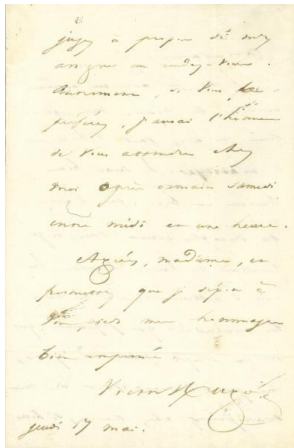 jugez à propos de m'y
assigner un rendez-vous.
Autrement, si vous le
préférez, j'aurai l'honneur
de vous attendre chez
moi après demain samedi
entre midi et une heure.
Agréez, madame, et
permettez que je dépose à
vos pieds mes hommages
bien empressés
Victor Hugo
jeudi 17 mai.